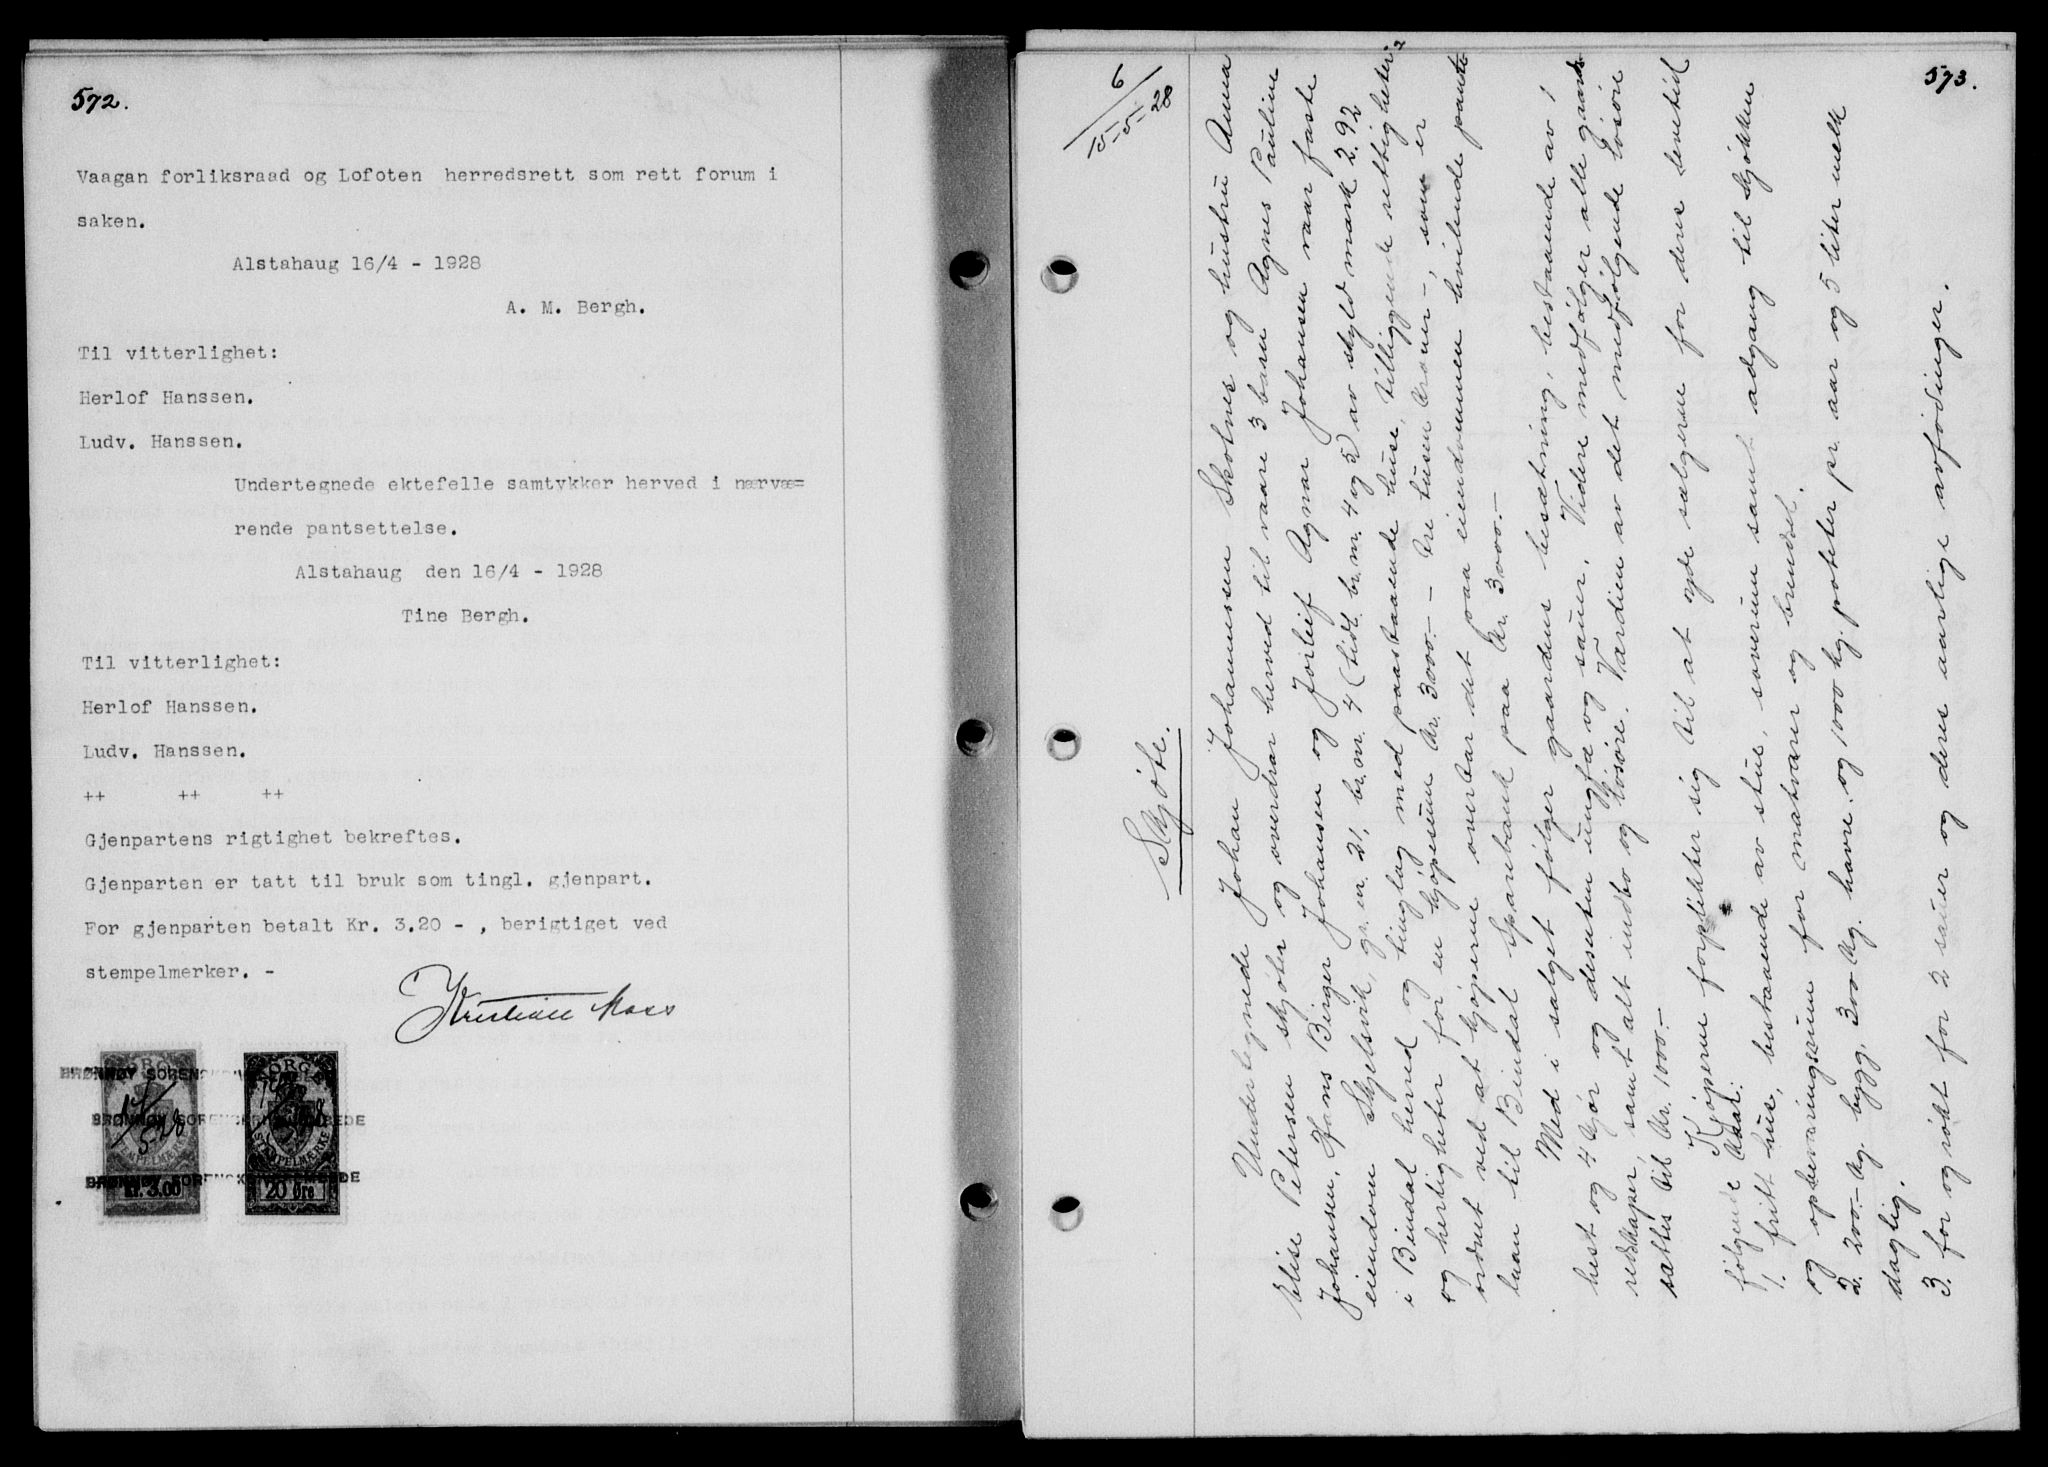 572.
Vaagan forliksraad og Lofoten herredsrett som rett forum i
saken.
Alstahaug 16/4 - 1928
A. M. Bergh.
Til vitterlighet:
Herlof Hanssen.
Ludv. Hanssen.
Undertegnede ektefelle samtykker herved i nærvæ=
rende pantsettelse.
Alstahaug den 16/4 - 1928
Tine Bergh.
Til vitterlighet:
Herlof Hanssen.
Ludv. Hanssen.
++ ++ ++
Gjenpartens rigtighet bekreftes.
Gjenparten er tatt til bruk som tingl. gjenpart.
For gjenparten betalt Kr. 3.20 - , berigtiget ved
stempelmerker. -
Kristian Moss
BRØNNØY SORENSKRIVEREMBEDE
STEMPELMÆRKE
Kr. 3.00
20 Øre
573.
6
15-5-28
Skjøte.
Undertegnede Johan Johannessen Skotnes og hustru Anna
Elise Petersen skjøter og overdrar herved til vaare 3 barn Agnes Pauline
Johansen, Hans Birger Johansen og Jorleif Agnar Johansen vaar faste
eiendom Skjelsvik, gr. nr. 21, br. nr. 4 (tidl. br. nr. 4 og 5) av skyld mark 2.92
i Bindal herred og tinglag med paastaaende huse, tilliggende rettigheter
og herligheter for en kjøpesum kr. 3000.- - tre tusen kroner -, som er
ordnet ved at kjøperne overtar det paa eiendommen hvilende pante
laan til Bindal Sparebank paa kr. 3000.-
Med i salget følger gaardens besætning, bestaaende av 1
hest og 4 kjør og desuten ungfæ og sauer. Videre medfølger alle gaards
redskaper, samt alt indbo og løsøre. Værdien av det medfølgende løsøre
sættes til kr. 1000.-
Kjøperne forplikter sig til at yde sælgerne for deres levetid
følgende kaar:
1. fritt hus, bestaaende av stue, soverum samt adgang til kjøkken
og opbevaringsrum for matvarer og brændsel.
2. 200.- kg. bygg, 300 kg. havre og 1000 kg. poteter pr. aar og 5 liter melk
daglig.
3. for og røkt for 2 sauer og deres aarlige avfødninger.